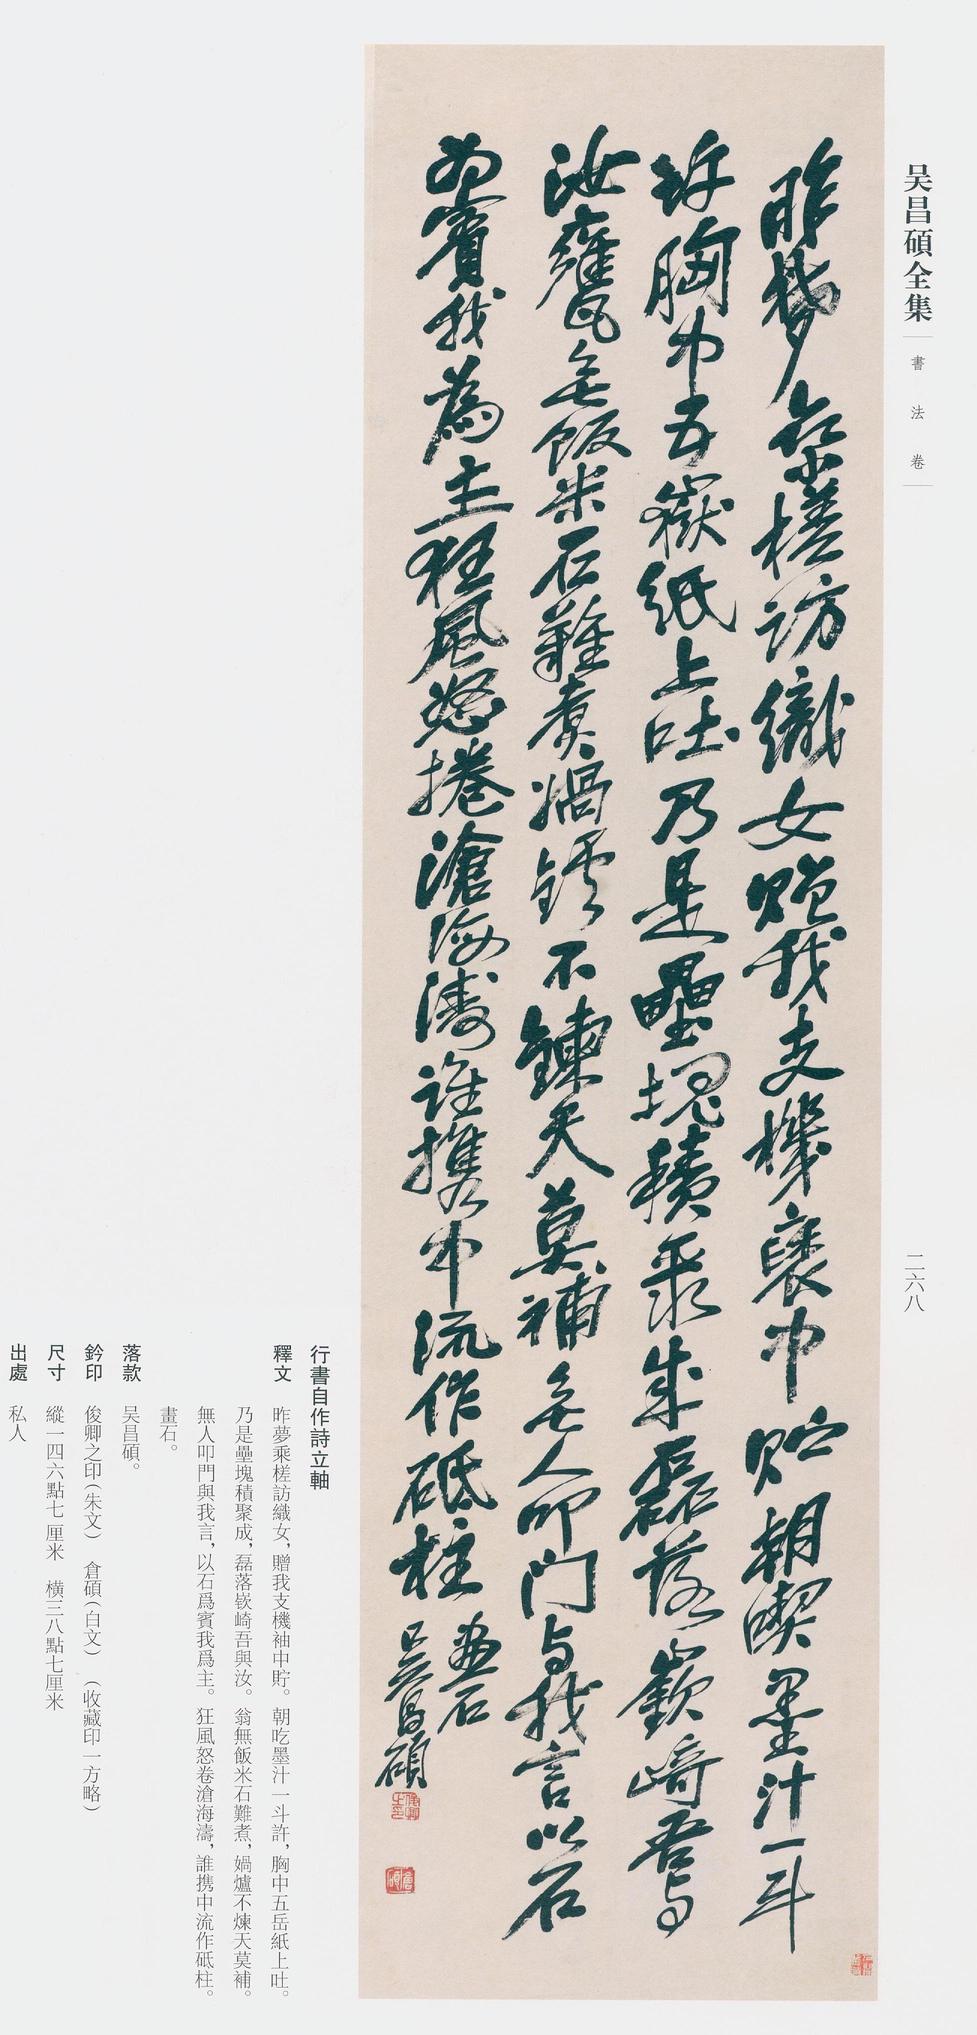 吴昌碩全集
書法卷
二六八
昨夢乘槎訪織女贈我支機褎中貯朝喫墨汁一斗
許胸中五嶽紙上吐乃是壘塊積聚成磊落嶔崎吾与
汝甕無飯米石難煮媧鑪不鍊天莫補無人叩门与我言以石
為賓我為主狂風怒捲滄海濤誰攜中流作砥柱
畫石
吴昌碩
俊卿之印
倉碩
行書自作詩立軸
釋文 昨夢乘槎訪織女，贈我支機袖中貯。朝吃墨汁一斗許，胸中五岳紙上吐。
乃是壘塊積聚成，磊落嵚崎吾與汝。翁無飯米石難煮，媧爐不煉天莫補。
無人叩門與我言，以石爲賓我爲主。狂風怒卷滄海濤，誰携中流作砥柱。
畫石。
落款 吴昌碩。
鈐印 俊卿之印（朱文） 倉碩（白文） （收藏印一方略）
尺寸 縱一四六點七厘米 橫三八點七厘米
出處 私人